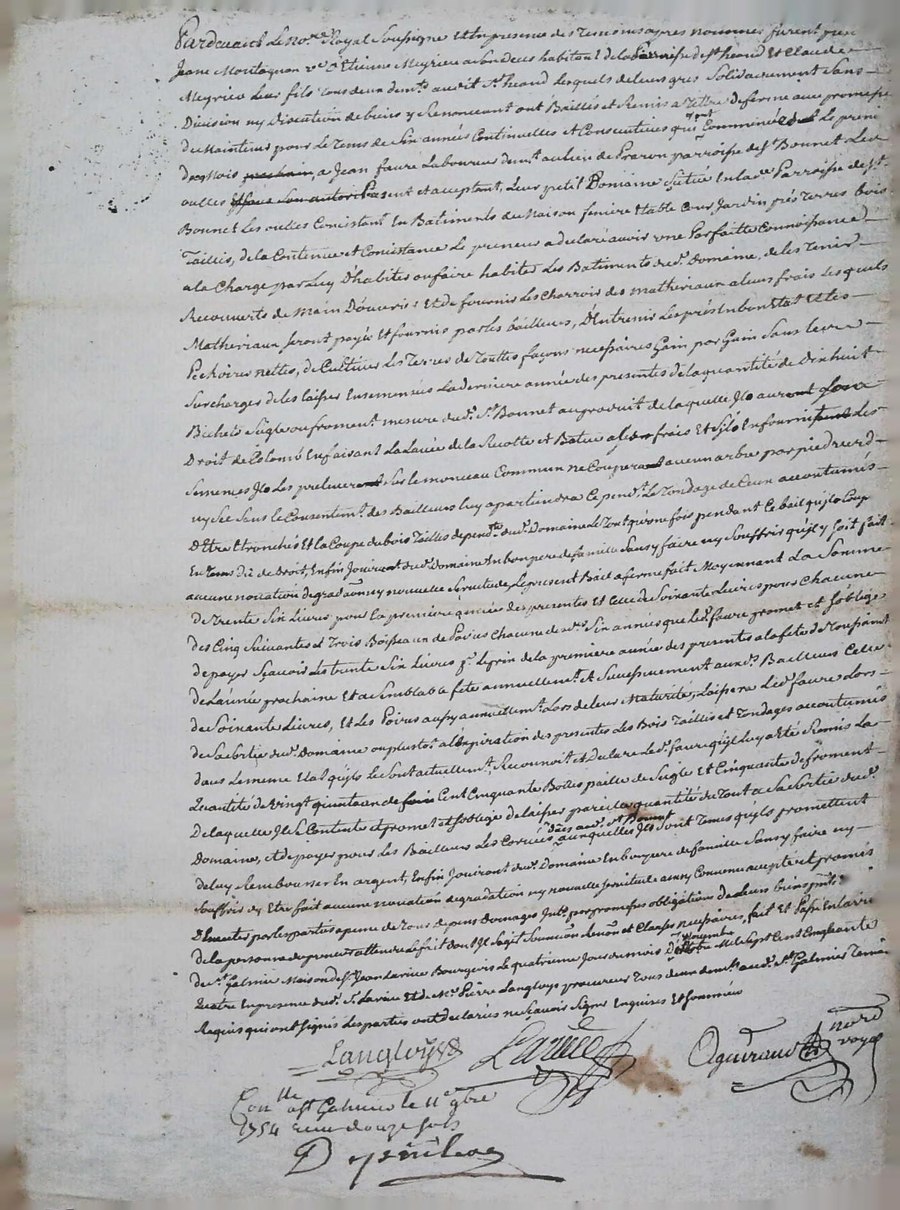 Pardevant Le No.re Royal Soussigne Et En presence des Temoins apres nommes furent presents
Jeane Montagnon v.e d'Etienne Meyrieu a son deces habitant de la Parroisse de St heand Et Claude
Meyrieu leur fils tous deux dem.ts audit St heand Lesquels de leurs gres Solidairement Sans
Division ny Discution de biens y Renoncent ont Baillés et Remis a Tittre de ferme avec promesse
du Maintenir pour Le Tems de Six années Continuelles Et Consecutives qui Le premier
du mois prochain, a Jean faure Laboureur dem.t au lieu de Prazon parroisse de St Bonnet Les
oulles Present et acceptant, Leur petit Domaine Situé En la d.e Parroisse de St
Bonnet Les oulles Consistant En Batiments de Maison feniere Etable Cour Jardin prés Terres bois
Taillis, de la Contenue et Consistance Le preneur a declaré avoir une Parfaitte Connoissance
a la Charge par Luy D'habiter ou faire habiter Les Batiments du d. Domaine, de les Tenir
Recouverts de Main D'ouvriers Et de fournir Les Charrois des matheriaux a leurs frais Lesquels
Matheriaux Seront payés Et fournis par les bailleurs, D'Entrenir Les prés En bon Etat Et Les
Pechoires nettes, de Cultiver Les Terres de Touttes façons necessaires Gain par Gain Sans les
Surcharger de les laisser Ensemencées La derniere année des presentes de la quantité de Dix huit
Bichets Seigle ou froment mesure du d. St Bonnet au produit de laquelle Ils auront
Droit de Colomb En faisant La Levée de la Recolte et Battue a frais Et S'ils En fournissent Les
Semences Ils Les preleveront Sur le monceau Commun ne Coupera aucun arbre par pied verd
ny Sec Sans le Consentem.t des Bailleurs Luy apartiendra Ce pend.t Le Tondage de Ceux acoutumés
D'Etre Etronchés Et la Coupe du bois Taillis dependt du d. Domaine Le Tout qu'une fois pendant Ce bail qu'ils Coup
En Tems dû de Droit, Enfin Jouira du d. Domaine En bon pere de famille Sans y faire ny Souffrir qu'il y Soit fait
aucune novation degradation ny nouvelle Servitude, Le present Bail a ferme fait Moyennant La Somme
de Trente Six Livres pour la premiere année des presentes Et Celle de Soixante Livres pour Chacune
des Cinq Suivantes Trois Boisseaux de Poires Chacune des d. Six années que Le d. faure promet et S'oblige
de payer Scavoir Les trente Six Livres p.r Le prix de la premiere année des presentes a la fete de Toussaint
de L'année prochaine Et a Semblable fete annuellem.t et Successivement aux d. Bailleurs Celle
de Soixante Livres, Et Les Poires aussy annuellem.t Lors de leur Maturité, Laissera Le d. faure Lors
de Sa Sortie du d. Domaine a l'Expiration des presentes les Bois Taillis et Tondages acoutumés
dans Le meme Etat qu'ils Le Sont actuellem.t, Reconnoit Et declare Le d. faure qu'il Luy a Eté Remis La
Quantité de Vingt quintaux de foin Cent Cinquante Bottes paille de Seigle Et Cinquante de froment
de laquelle Il Se Contente et promet et S'oblige de laisser pareille quantité du Tout a Sa Sortie du d.
Domaine, et de payer pour Les Bailleurs Les Corvées dües au d. St Bonnet auxquelles Ils Sont Tenus qu'ils promettent
de luy Rembourser En argent, Enfin Jouira du d. Domaine En bon pere de famille Sans y faire ny
Souffrir y Etre fait aucune novation degradation ny nouvelle Servitude ainsy Convenu accepté et promis
par les parties a peine de Tous depens domages Int.ts par promesses obligations de Leurs biens pnts
de la personne du preneur attendu le fait dont Il Sagit Soumission Renon et Clauses necessaires, fait Et Passé En la ville
de St Galmier Maison de Sr Jean Larive Bourgeois Le quatrieme Jour du mois De Novembre Mil Sept Cent Cinquante
Quatre En presence du d. Sr Larive Et de Me Pierre Langloys procureur Tous deux dem.ts au d. St Galmier Temoins
Requis qui ont Signés Les parties ont declarées ne Scavoir Signer Enquises Et Sommées
Langloys
Larive
Royal
Con.lle a St Galmier le 11e 9bre
1754 reçu douze sols